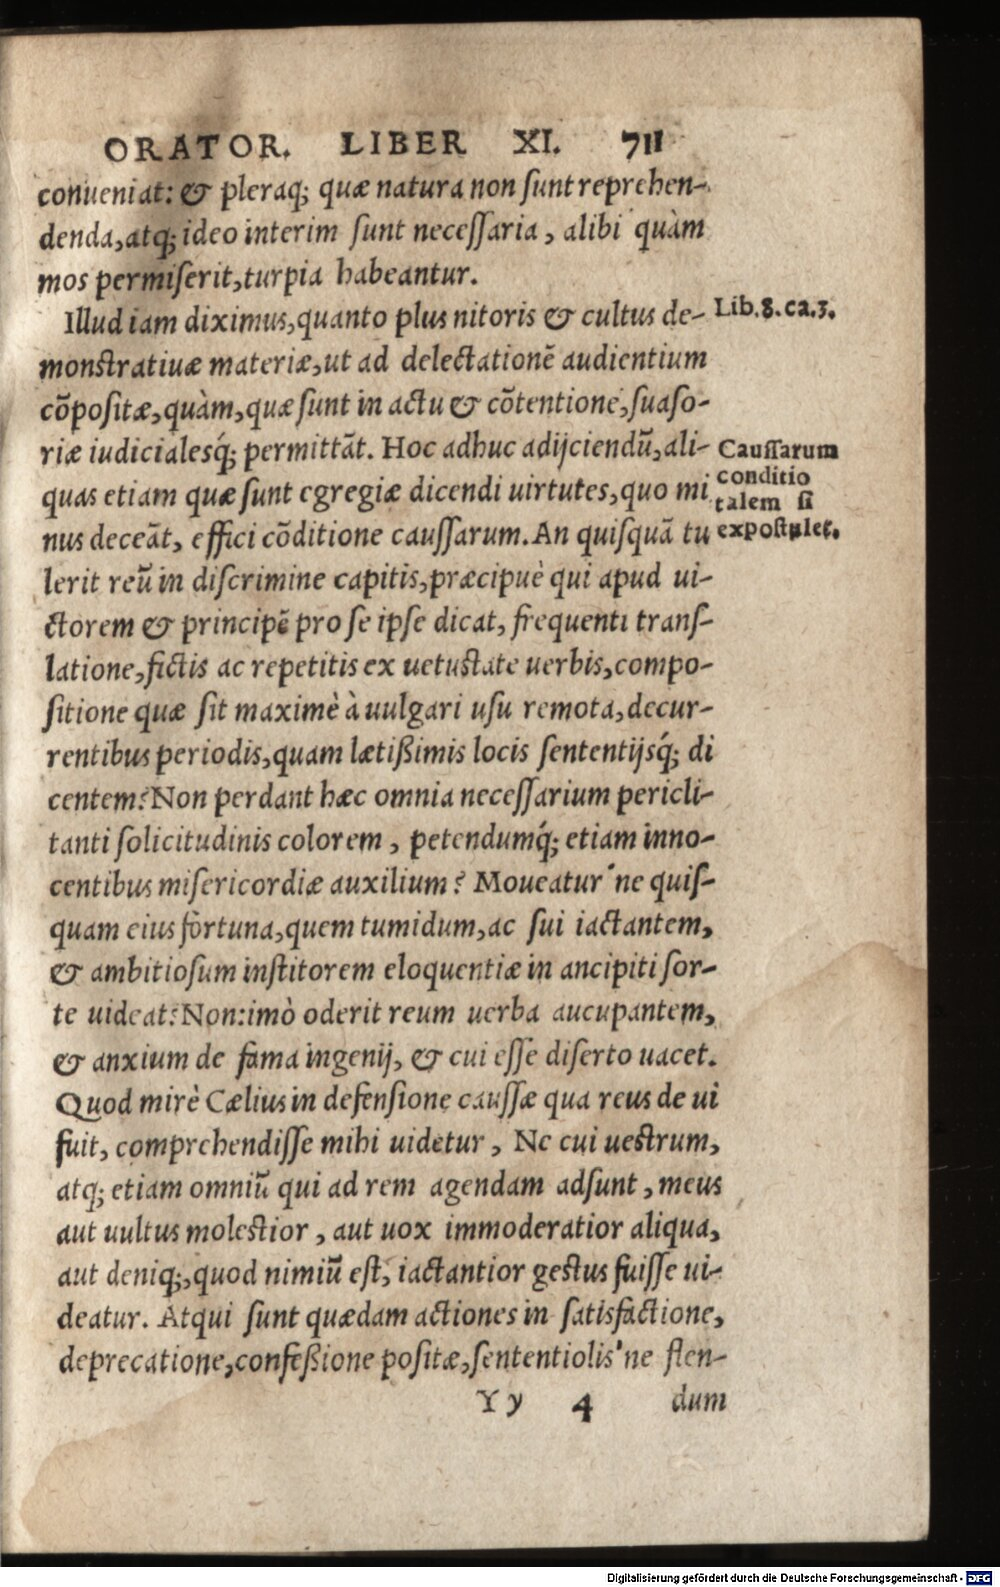 ORATOR. LIBER XI. 711
conueniat: & pleraq; quæ natura non sunt reprehen-
denda, atq; ideo interim sunt necessaria, alibi quàm
mos permiserit, turpia habeantur.
Illud iam diximus, quanto plus nitoris & cultus de-
monstratiuæ materiæ, ut ad delectationē audientium
cōpositæ, quàm, quæ sunt in actu & cōtentione, suaso-
riæ iudicialesq́; permittāt. Hoc adhuc adijciendū, ali-
quas etiam quæ sunt egregiæ dicendi uirtutes, quo mi
nus deceāt, effici cōditione caussarum. An quisquā tu
lerit reū in discrimine capitis, præcipuè qui apud ui-
ctorem & principē pro se ipse dicat, frequenti trans-
latione, fictis ac repetitis ex uetustate uerbis, compo-
sitione quæ sit maximè à uulgari usu remota, decur-
rentibus periodis, quam lætißimis locis sententijsq́; di
centem? Non perdant hæc omnia necessarium pericli-
tanti solicitudinis colorem, petendumq́; etiam inno-
centibus misericordiæ auxilium? Moueatur'ne quis-
quam eius fortuna, quem tumidum, ac sui iactantem,
& ambitiosum institorem eloquentiæ in ancipiti sor-
te uideat? Non: imò oderit reum uerba aucupantem,
& anxium de fama ingenij, & cui esse diserto uacet.
Quod mirè Cælius in defensione caussæ qua reus de ui
fuit, comprehendisse mihi uidetur, Ne cui uestrum,
atq; etiam omniū qui ad rem agendam adsunt, meus
aut uultus molestior, aut uox immoderatior aliqua,
aut deniq;, quod nimiū est, iactantior gestus fuisse ui-
deatur. Atqui sunt quædam actiones in satisfactione,
deprecatione, confeßione positæ, sententiolis'ne flen-
Yy 4 dum
Lib.8.ca.3.
Caussarum
conditio
talem si
expostulet.
Digitalisierung gefördert durch die Deutsche Forschungsgemeinschaft - DFG